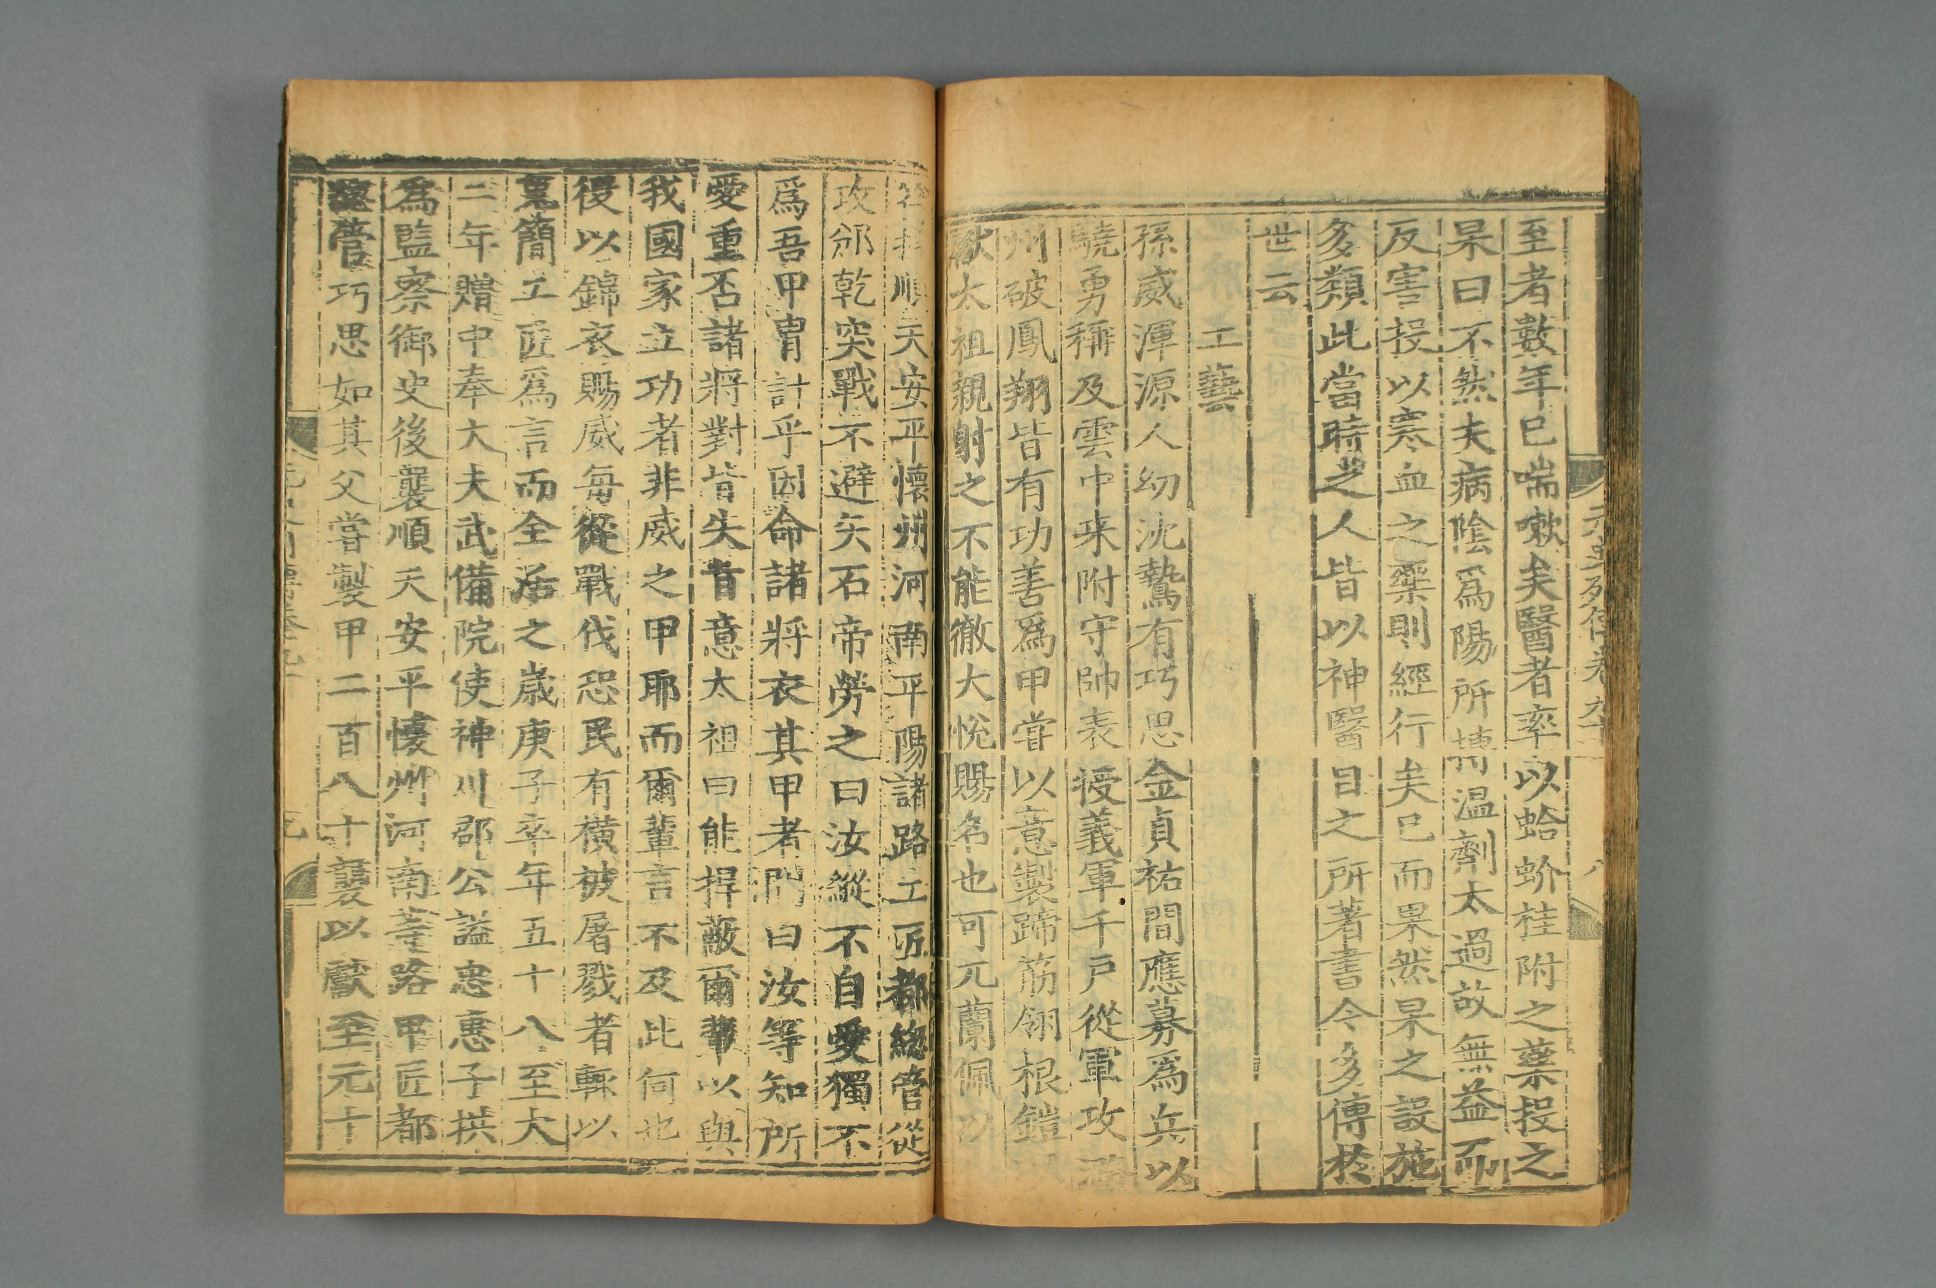 至者數年已喘嗽矣醫者率以蛤蚧桂附之藥投之
杲曰不然夫病陰爲陽所搏溫劑太過故無益而
反害投以寒血之藥則經行矣已而果然杲之設施
多類此當時之人皆以神醫目之所著書今多傳於
世云
工藝
孫威渾源人幼沈鷙有巧思金貞祐間應募爲兵以
驍勇稱及雲中来附守帥表授義軍千戶從軍攻潞
州破鳳翔皆有功善爲甲嘗以意製蹄筋翎根鎧以
獻太祖親射之不能徹大悅賜名也可兀蘭佩以
符授順天安平懷州河南平陽諸路工匠都總管從
攻邠乾突戰不避矢石帝勞之曰汝縱不自愛獨不
爲吾甲冑計乎因命諸將衣其甲者問曰汝等知所
愛重否諸將對皆失旨意太祖曰能捍蔽爾輩以與
我國家立功者非威之甲耶而爾輩言不及此何也
復以錦衣賜威每從戰伐恐民有橫被屠戮者輒以
蒐簡工匠爲言而全活之歲庚子卒年五十八至大
二年贈中奉大夫武備院使神川郡公謚忠惠子拱
爲監察御史後襲順天安平懷州河南等路甲匠都
總管巧思如其父嘗製甲二百八十襲以獻至元十
元史列傳卷九十
八
九